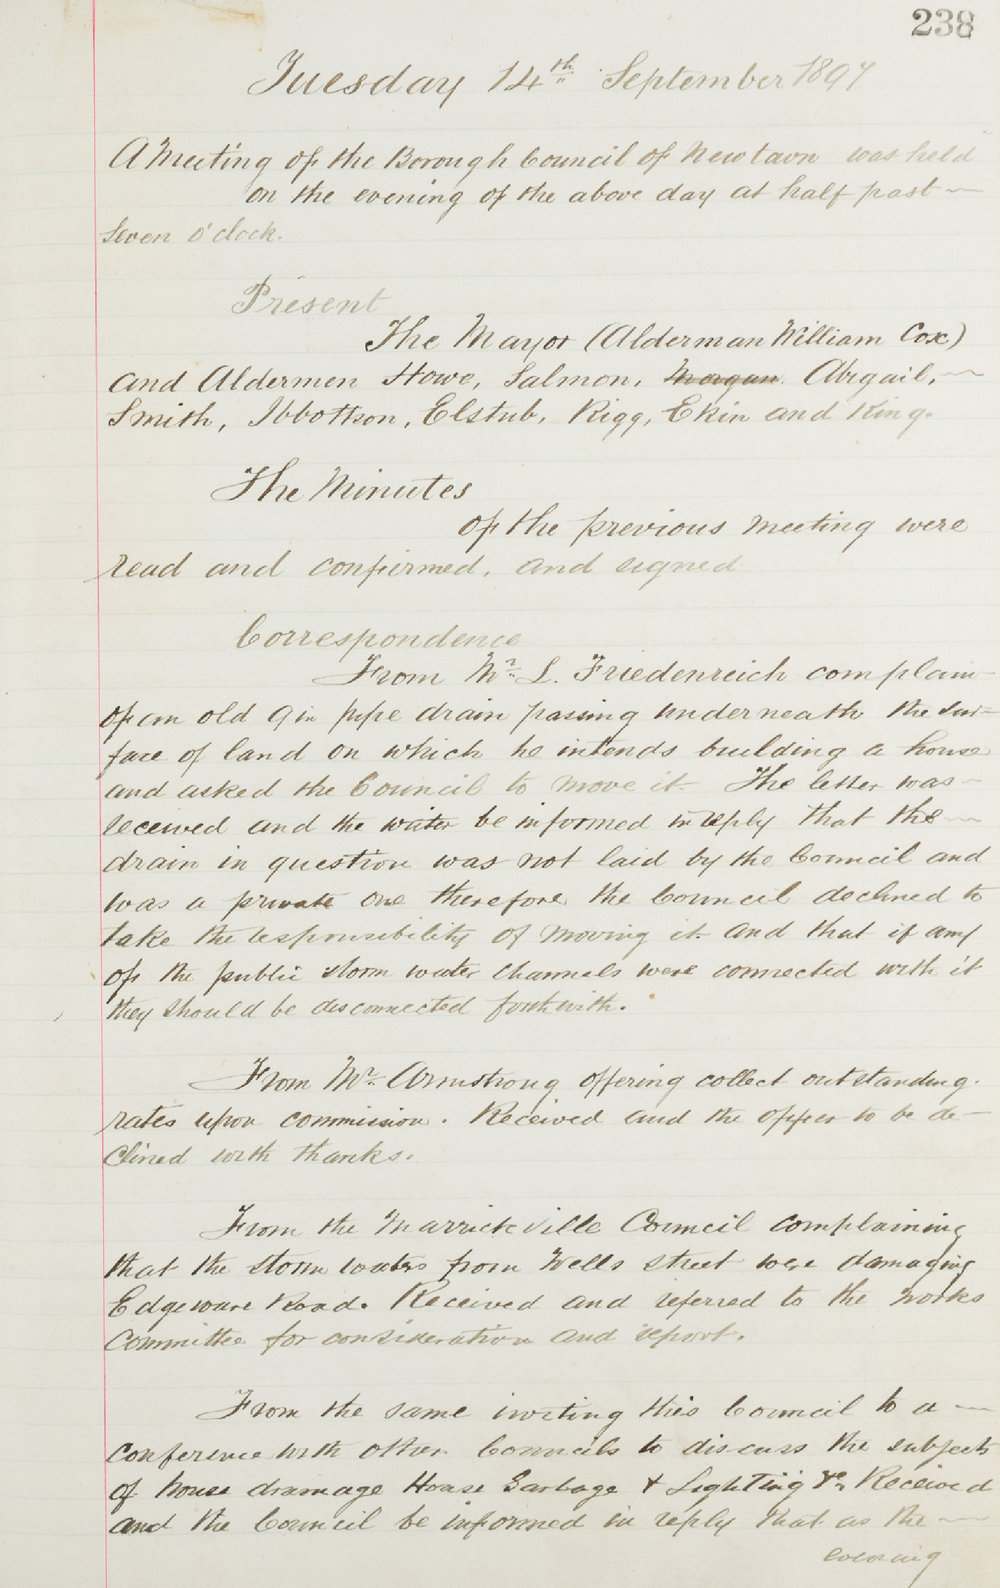 238
Tuesday 14th September 1897
A Meeting of the Borough Council of Newtown was held
on the evening of the above day at half past
seven o'clock.
Present
The Mayor (Alderman William Cox)
and Aldermen Howe, Salmon, Morgan Abigail,
Smith, Ibbottson, Elstub, Rigg, Ekin and King.
The Minutes
of the previous meeting were
read and confirmed, and signed
Correspondence
From Mr. L. Friedenreich complain
of an old 9 in pipe drain passing underneath the sur-
face of land on which he intends building a house
and asked the Council to move it. The letter was
received and the writer be informed in reply that the
drain in question was not laid by the Council and
was a private one therefore the Council declined to
take the responsibility of moving it and that if any
of the public storm water channels were connected with it
they should be disconnected forthwith.
From Mr. Armstrong offering collect outstanding
rates upon commission. Received and the offer to be de-
clined with thanks.
From the Marrickville Council complaining
that the storm waters from Wells street were damaging
Edgeware Road. Received and referred to the Works
Committee for consideration and report.
From the same inviting this Council to a
conference with other Councils to discuss the subjects
of house drainage House Garbage & Lighting &c Received
and the Council be informed in reply that as the
evening